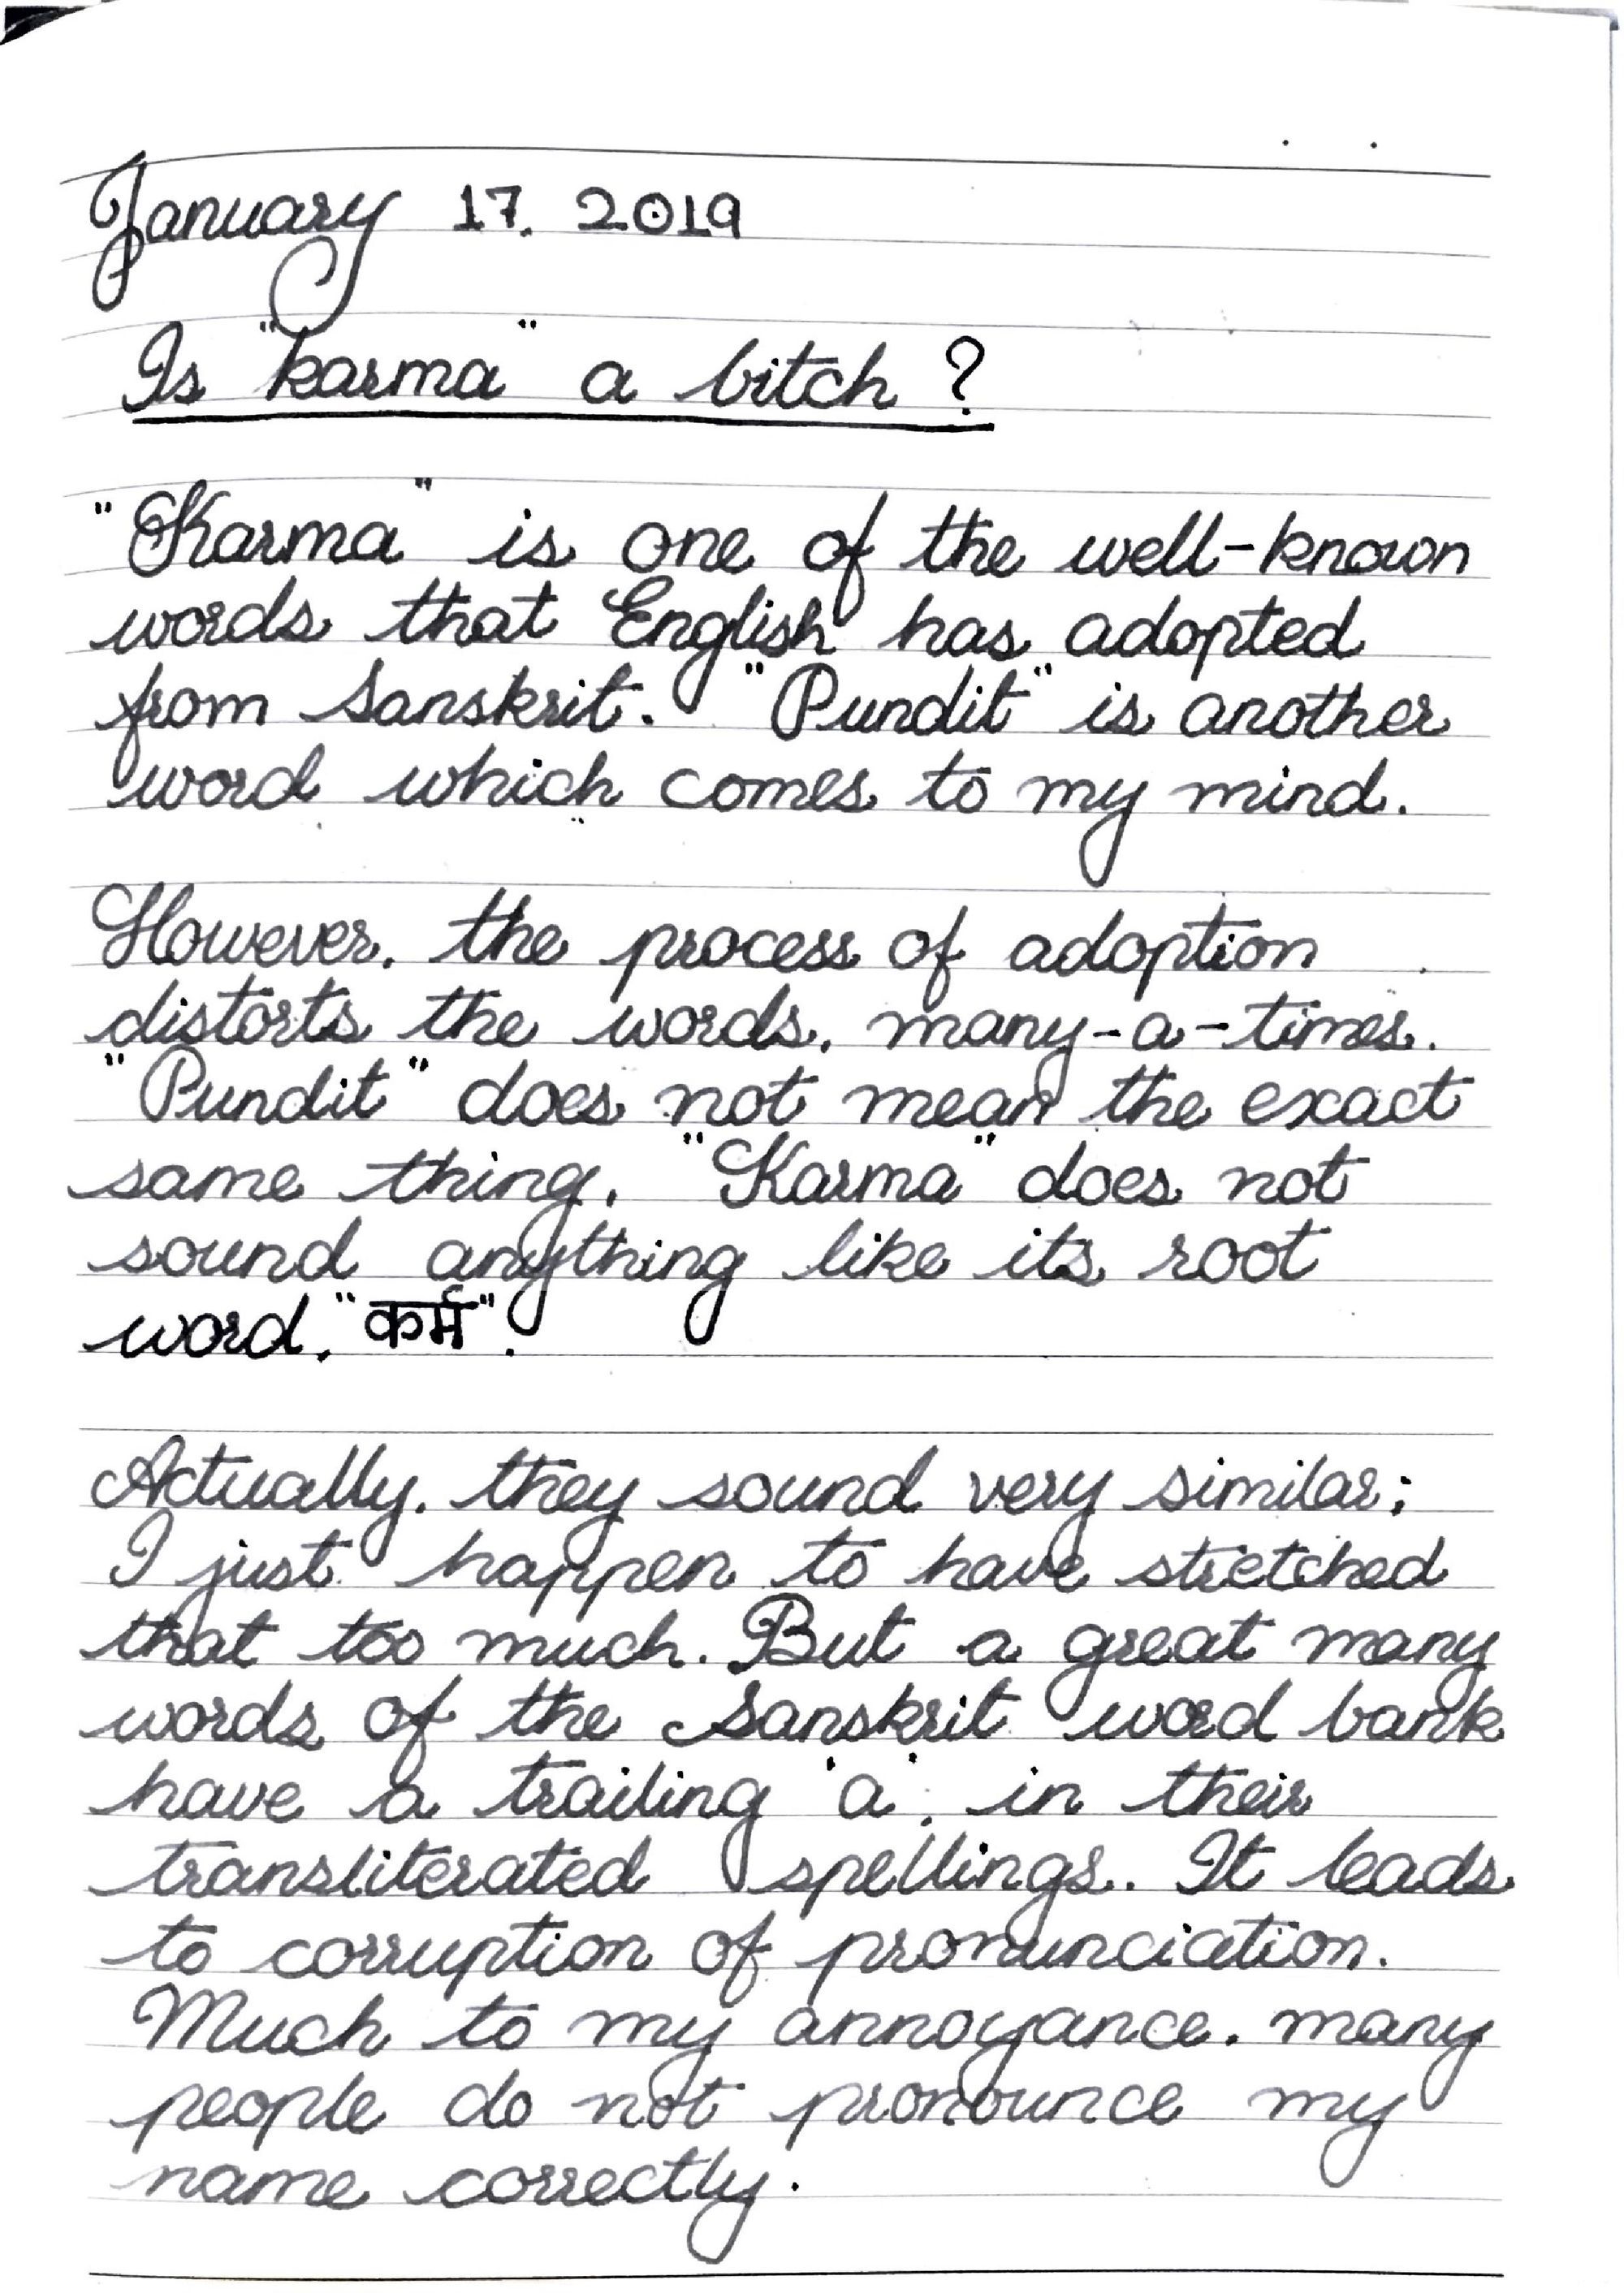 January 17, 2019
Is "karma" a bitch ?
"Karma" is one of the well-known
words that English has adopted
from Sanskrit. "Pundit" is another
word which comes to my mind.
However, the process of adoption
distorts the words, many-a-times.
"Pundit" does not mean the exact
same thing, "Karma" does not
sound anything like its root
word, "कर्म".
Actually, they sound very similar;
I just happen to have stretched
that too much. But a great many
words of the Sanskrit word bank
have a trailing 'a', in their
transliterated spellings. It leads
to corruption of pronunciation.
Much to my annoyance, many
people do not pronounce my
name correctly.